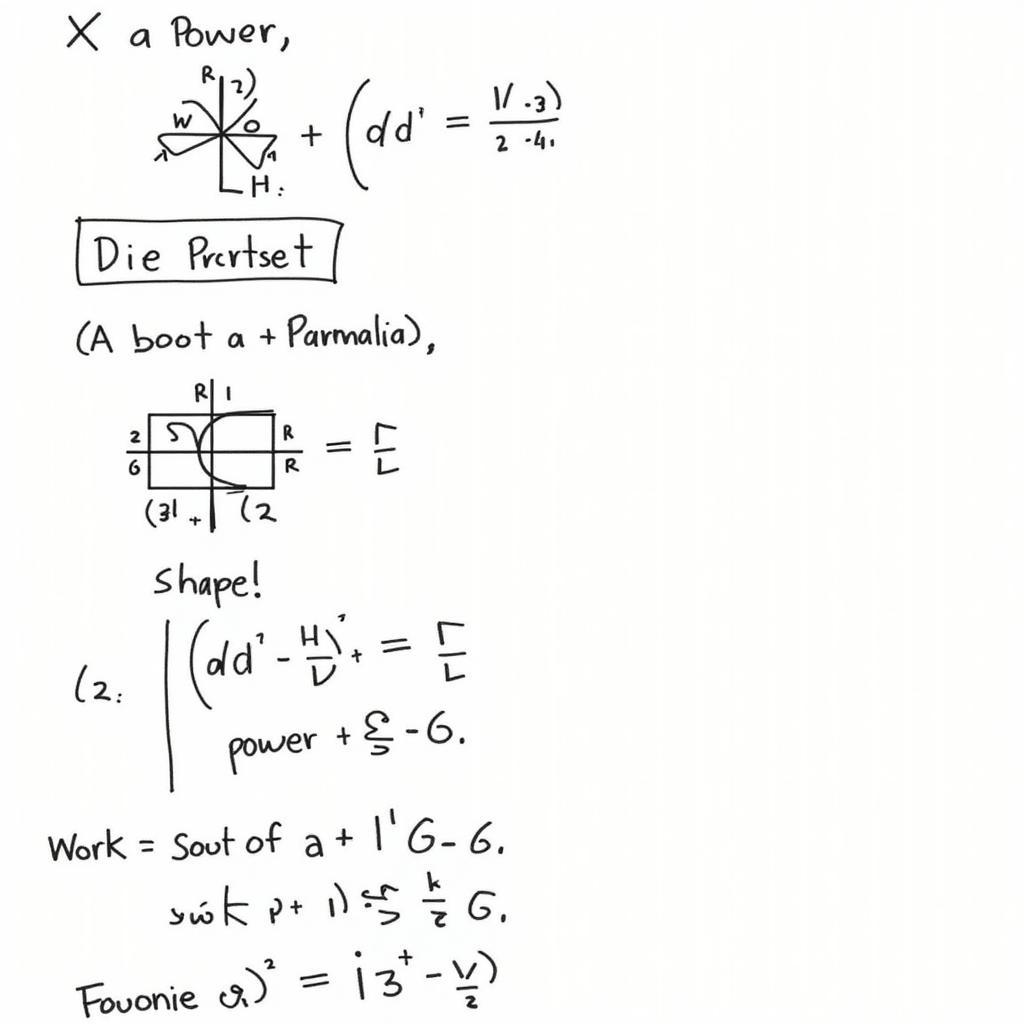 X a Power,
R 2)
W O
H :
+ (dd' = V .3) / 2 -4.
Die Prcrtset
(A boot a + Parmalia),
R 1
2 5 R
6 R
=
(3| + (2
shape!
(2. (dd' - H/V)' + =
power + - G.
Work = Sout of a + I' G - 6.
k p+ 1) k/2 G.
Fouonie )² = i3⁺ - V/2)